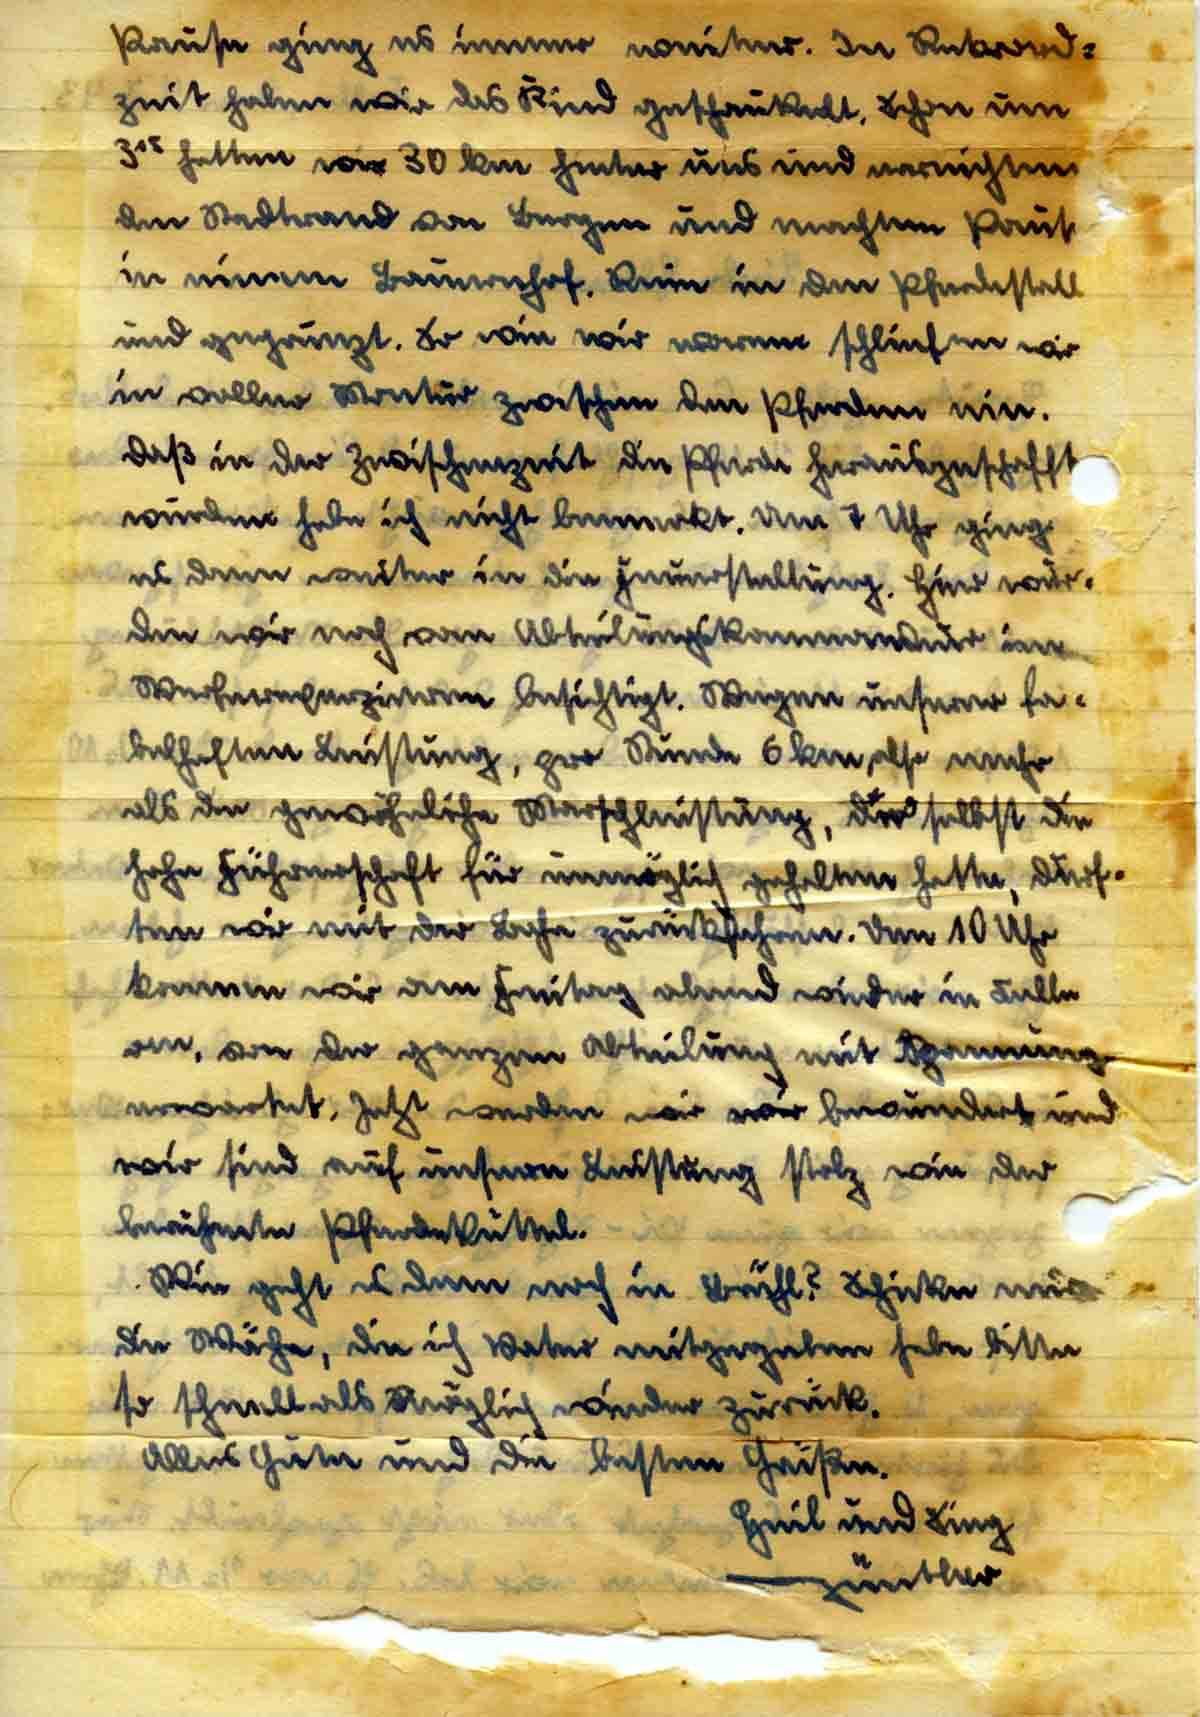 Pause ging es immer weiter. In Rekord=
zeit haben wir das Kind geschaukelt. Schon um
3¹⁵ hatten wir 30 km hinter uns und erreichten
den Stadtrand von Bergen und machten Pause
in einem Bauernhof. Rein in den Pferdestall
und gegrunzt. So wie wir waren schliefen wir
in voller Montur zwischen den Pferden ein.
daß in der Zwischenzeit die Pferde herausgeschafft
wurden habe ich nicht bemerkt. Um 7 Uhr ging
es dann weiter in die Feuerstellung. Hier wur-
den wir noch vom Abteilungskommandeur im
Werferexerzieren besichtigt. Wegen unserer fa-
belhaften Leistung, pro Stunde 6 km, also mehr
als die gewöhnliche Marschleistung, die selbst die
hohe Führerschaft für unmöglich gehalten hatte, durf-
ten wir mit der Bahn zurückfahren. Um 10 Uhr
kamen wir am Freitag abend wieder in Celle
an, von der ganzen Abteilung mit Spannung
erwartet. Jetzt werden wir wir bewundert und
wir sind auf unsere Leistung stolz wie der
berühmte Pferdeküttel.
Wie geht es denn noch in Brühl? Schicke mir
die Wäsche, die ich Vater mitgegeben habe bitte
so schnell als Möglich wieder zurück.
Alles Gute und die besten Grüße.
Heil und Sieg
Günther